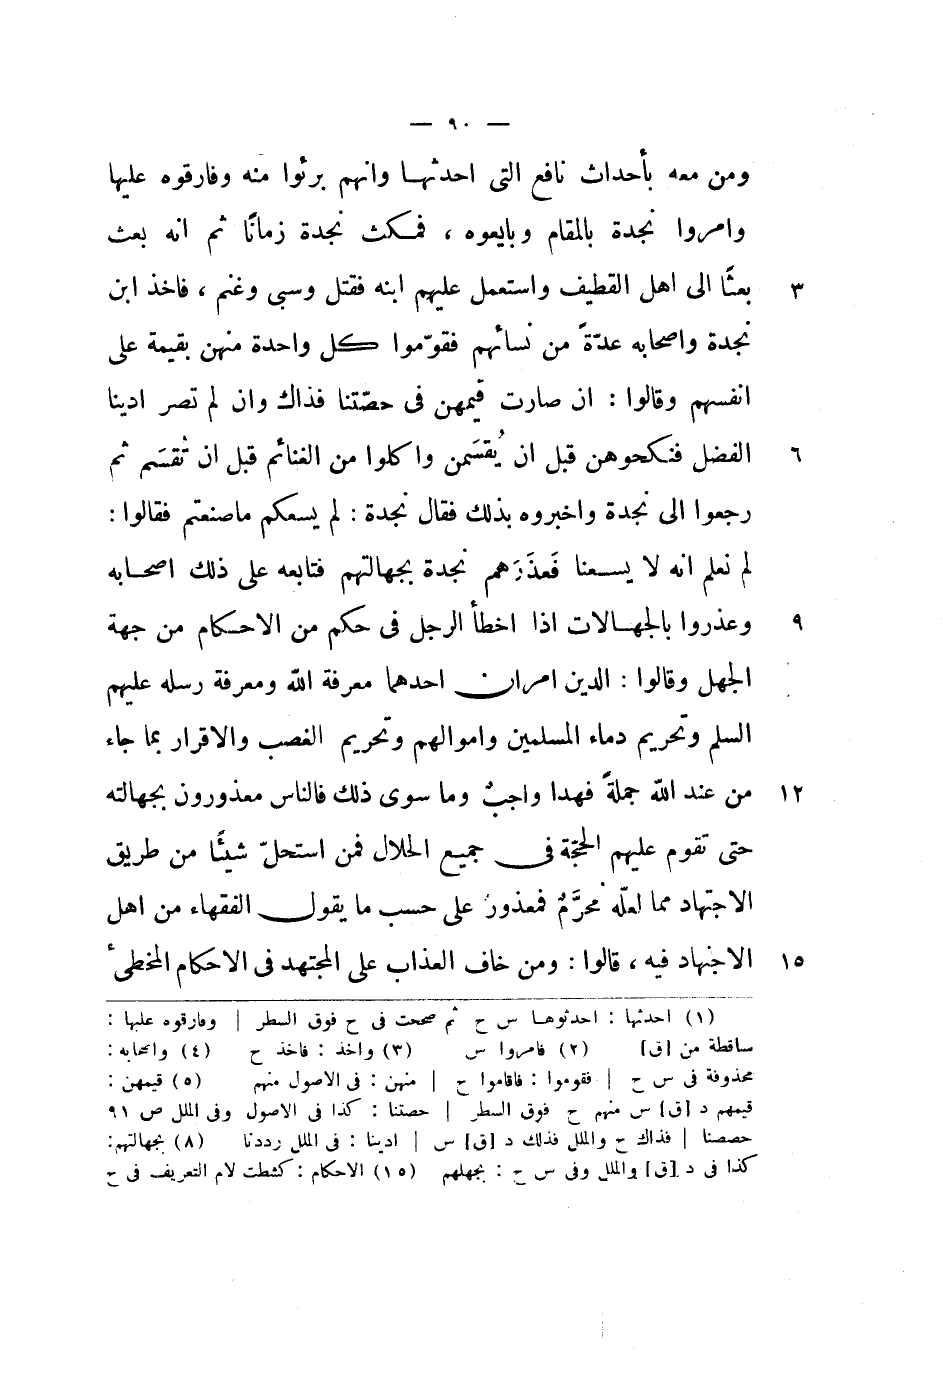 — ٩٠ —
ومن معه بأحداث نافع التى احدثها وانهم برئوا منه وفارقوه عليها
وامروا نجدة بالمقام وبايعوه ، فمكث نجدة زمانًا ثم انه بعث
٣ بعثًا الى اهل القطيف واستعمل عليهم ابنه فقتل وسبى وغنم ، فاخذ ابن
نجدة واصحابه عدّةً من نسائهم فقوّموا كل واحدة منهن بقيمة على
انفسهم وقالوا : ان صارت قيمهن فى حصّتنا فذاك وان لم تصر ادينا
٦ الفضل فنكحوهن قبل ان يُقسَمن واكلوا من الغنائم قبل ان تُقسَم ثم
رجعوا الى نجدة واخبروه بذلك فقال نجدة : لم يسعكم ماصنعتم فقالوا :
لم نعلم انه لا يسعنا فَعذَرَهم نجدة بجهالتهم فتابعه على ذلك اصحابه
٩ وعذروا بالجهالات اذا اخطأ الرجل فى حكم من الاحكام من جهة
الجهل وقالوا : الدين امران احدهما معرفة الله ومعرفة رسله عليهم
السلم وتحريم دماء المسلمين واموالهم وتحريم الغصب والاقرار بما جاء
١٢ من عند الله جملةً فهدا واجبٌ وما سوى ذلك فالناس معذورون بجهالته
حتى تقوم عليهم الحجّة فى جميع الحلال فمن استحلّ شيئًا من طريق
الاجتهاد مما لعلّه محرَّمٌ فمعذورٌ على حسب ما يقول الفقهاء من اهل
١٥ الاجتهاد فيه ، قالوا : ومن خاف العذاب على المجتهد فى الاحكام المخطىٔ
(١) احدثها : احدثوها س ح ثم صححت فى ح فوق السطر | وفارقوه عليها :
ساقطة من [ق] (٢) فامروا س (٣) واخذ : فاخذ ح (٤) واصحابه :
محذوفة فى س ح | فقوموا : فاقاموا ح | منهن : فى الاصول منهم (٥) قيمهن :
قيمهم د [ق] س منهم ح فوق السطر | حصتنا : كذا فى الاصول وفى الملل ص ٩١
حصصنا | فذاك ح والملل فذلك د [ق] س | ادينا : فى الملل رددنا (٨) بجهالتهم:
كذا فى د [ق] والملل وفى س ح : بجهلهم (١٥) الاحكام : كشطت لام التعريف فى ح